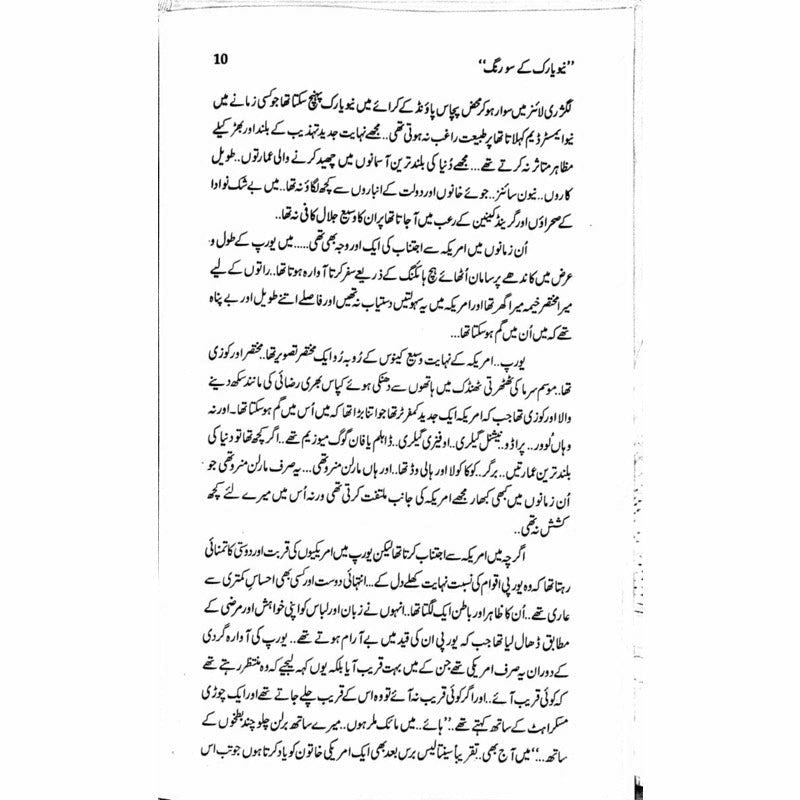 10
’’نیویارک کے سو رنگ‘‘
لگژری لائنر میں سوار ہو کر محض پچاس پاؤنڈ کے کرائے میں نیویارک پہنچ سکتا تھا جو کسی زمانے میں
نیو ایمسٹرڈیم کہلاتا تھا پر طبیعت راغب نہ ہوتی تھی.. مجھے نہایت جدید تہذیب کے بلند اور بھڑکیلے
مظاہر متاثر نہ کرتے تھے... مجھے دُنیا کی بلند ترین آسمانوں میں چھید کرنے والی عمارتوں.. طویل
کاروں.. نیون سائنز.. جوئے خانوں اور دولت کے انباروں سے کچھ لگاؤ نہ تھا.. میں بے شک نوادا
کے صحراؤں اور گرینڈ کینین کے رعب میں آ جاتا تھا پر ان کا وسیع جلال کافی نہ تھا..
اُن زمانوں میں امریکہ سے اجتناب کی ایک اور وجہ بھی تھی..... میں یورپ کے طول و
عرض میں کاندھے پر سامان اُٹھائے ہچ ہائکنگ کے ذریعے سفر کرتا آوارہ ہوتا تھا.. راتوں کے لیے
میرا مختصر خیمہ میرا گھر تھا اور امریکہ میں یہ سہولتیں دستیاب نہ تھیں اور فاصلے اتنے طویل اور بے پناہ
تھے کہ میں اُن میں گم ہو سکتا تھا...
یورپ.. امریکہ کے نہایت وسیع کینوس کے رُوبہ رُو ایک مختصر تصویر تھا.. مختصر اور کوزی
تھا.. موسم سرما کی ٹھٹھرتی ٹھنڈک میں ہاتھوں سے دھنکی ہوئے کپاس بھری رضائی کی مانند سکھ دینے
والا اور کوزی تھا جب کہ امریکہ ایک جدید کمفرٹر تھا جو اتنا بڑا تھا کہ میں اُس میں گم ہو سکتا تھا۔ اور نہ
وہاں لُوور.. پراڈو.. نیشنل گیلری.. اوفیزی گیلری.. ڈاہلم یا فان گوگ میوزیم تھے.. اگر کچھ تھا تو دنیا کی
بلند ترین عمارتیں.. برگر.. کوکا کولا اور ہالی وڈ تھا.. اور ہاں مارلن منرو تھی... یہ صرف مارلن منرو تھی جو
اُن زمانوں میں کبھی کبھار مجھے امریکہ کی جانب ملتفت کرتی تھی ورنہ اُس میں میرے لئے کچھ
کشش نہ تھی..
اگرچہ میں امریکہ سے اجتناب کرتا تھا لیکن یورپ میں امریکیوں کی قربت اور دوستی کا تمنائی
رہتا تھا کہ وہ یورپی اقوام کی نسبت نہایت کھلے دل کے... انتہائی دوست اور کسی بھی احساسِ کمتری سے
عاری تھے.. اُن کا ظاہر اور باطن ایک لگتا تھا.. انہوں نے زبان اور لباس کو اپنی خواہش اور مرضی کے
مطابق ڈھال لیا تھا جب کہ یورپی ان کی قید میں بے آرام ہوتے تھے.. یورپ کی آوارہ گردی
کے دوران یہ صرف امریکی تھے جن کے میں بہت قریب آیا بلکہ یوں کہہ لیجیے کہ وہ منتظر رہتے تھے
کہ کوئی قریب آئے.. اور اگر کوئی قریب نہ آئے تو وہ اس کے قریب چلے جاتے تھے اور ایک چوڑی
مسکراہٹ کے ساتھ کہتے تھے.. ’’ہائے.. میں مائک ملر ہوں.. میرے ساتھ برلن چلو چند بطخوں کے
ساتھ...‘‘ میں آج بھی.. تقریباً سینتالیس برس بعد بھی ایک امریکی خاتون کو یاد کرتا ہوں جو تب اس